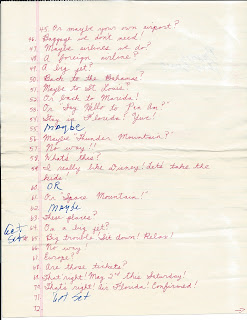 45. Or maybe your own airport?
46. Baggage we don't need!
47. Maybe airlines we do?
48. A foreign airline?
49. A big jet?
50. Back to the Bahamas?
51. Maybe to St Louis?
52. Or back to
53. Or "Say Hello to Pan Am?"
54. Stay in Florida?
55. MAYBE
56. Maybe "Thunder Mountain?"
57. No way!!
58. What's this?
59. I really like Disney! Let's take the
kids
60. OR
61. Or "Space Mountain!"
62. MAYBE
63. These places?
64. On a big jet?
65. Big trouble! Sit down! Relax!
66. No way!
67. Europe?
68. Are those tickets?
69. That's right! May 2nd this Saturday!
70. That's right! Air Florida! Confirmed!
71.
72.